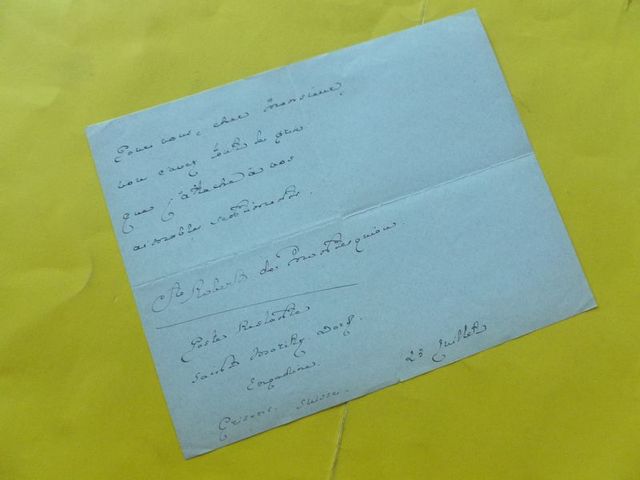 Pour vous, cher Monsieur,
vous savez
que j'attache à vos
aimables sentiments.
Cte Robert de Montesquiou.
Poste Restante
Saint Moritz Dorf.
Engadine.
Grisons. Suisse.
25 Juillet